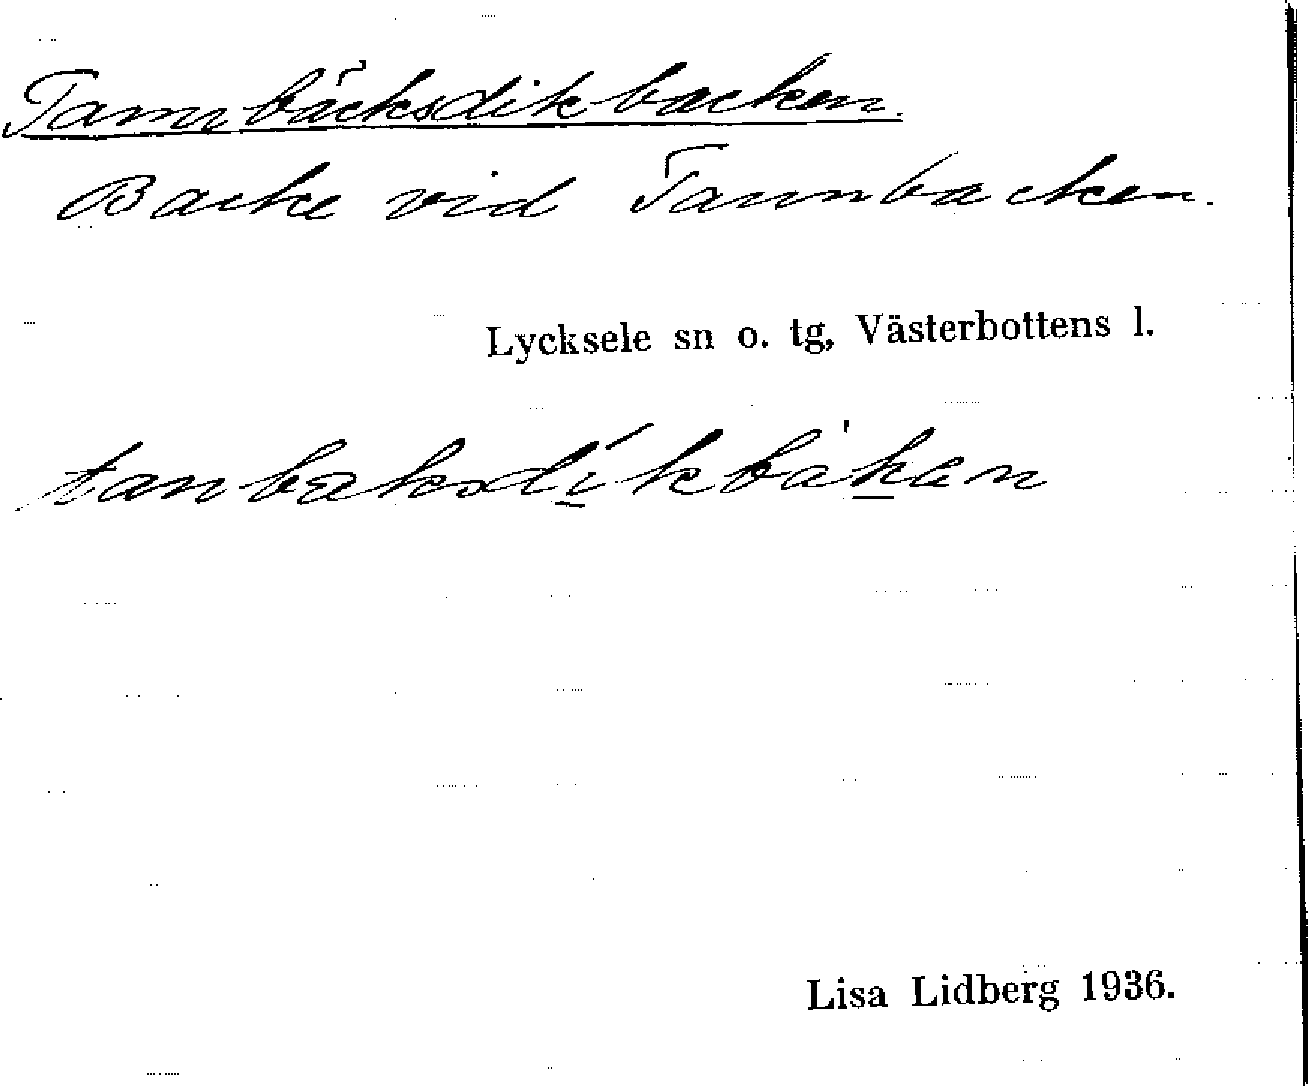 Tannbäcksdikbacken.
Backe vid Tannbacken.
Lycksele sn o. tg, Västerbottens l.
tanbæksdikbaken
Lisa Lidberg 1936.